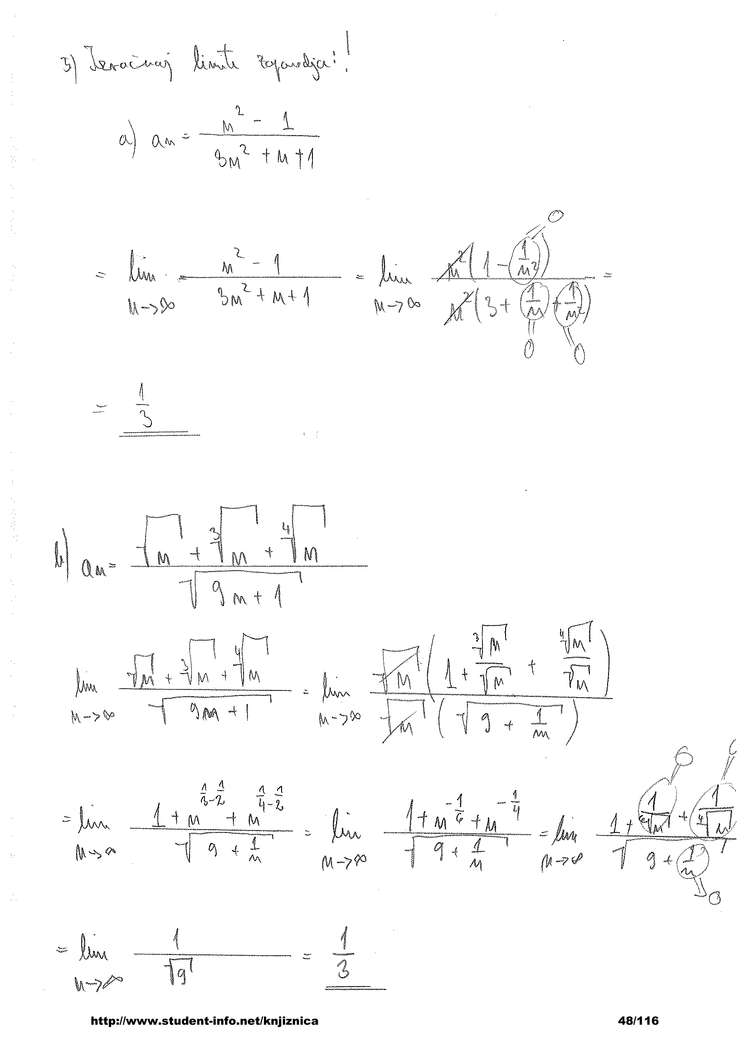 3) Izračunaj limite zaporedja:!
a) an = (n² - 1)/(3n² + n + 1)
= lim n→∞ (n² - 1)/(3n² + n + 1) = lim n→∞ n²(1 - 1/n²)/n²(3 + 1/n + 1/n²) =
= 1/3
b) an = (√n + ³√n + ⁴√n)/√(9n + 1)
lim n→∞ (√n + ³√n + ⁴√n)/√(9n + 1) = lim n→∞ √n(1 + ³√n/√n + ⁴√n/√n)/√n(√(9 + 1/n))
= lim n→∞ (1 + n^(1/3 - 1/2) + n^(1/4 - 1/2))/√(9 + 1/n) = lim n→∞ (1 + n^(-1/6) + n^(-1/4))/√(9 + 1/n) = lim n→∞ (1 + 1/⁶√n + 1/⁴√n)/√(9 + 1/n)
= lim n→∞ 1/√9 = 1/3
http://www.student-info.net/knjiznica 48/116